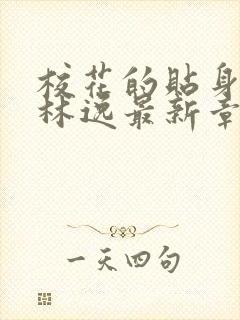 校花的贴身
林逸最新章
一天四句